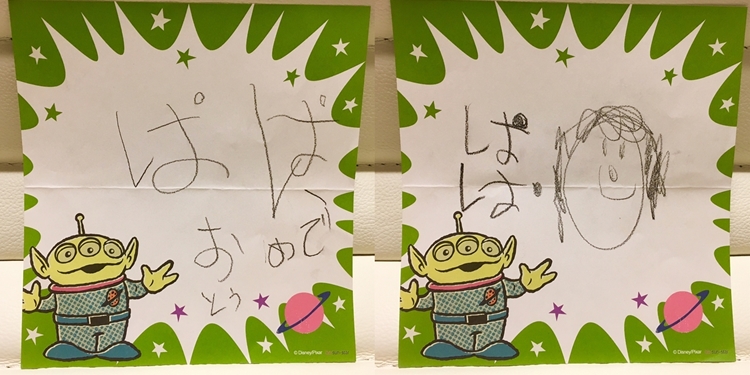 ぱぱ
おめで
とう
© Disney/Pixar
ぱ
ぱ
© Disney/Pixar